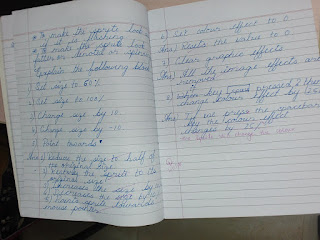 * To make the sprite look
if light flashing
* To make the sprite look
fatter or
Explain the following blocks
1) Set size to 50%
2) Set size to 100%
3) Change size by 10
4) Change size by -10
5) Point towards
Ans 1) Reduce the size to half of
the original size.
2) the sprite to the
original size.
3) Increases the size by 10
4) Decreases the size by 10
5) Points sprite towards
mouse pointer.
6) Set colour effect to 0
Ans) Resets the value to 0
7) Clear graphic effects
Ans) All the image effects are
removed
8) When key pressed? then
change colour effect by 25
Ans) If we press the spacebar
key the colour effect
changes by 25.